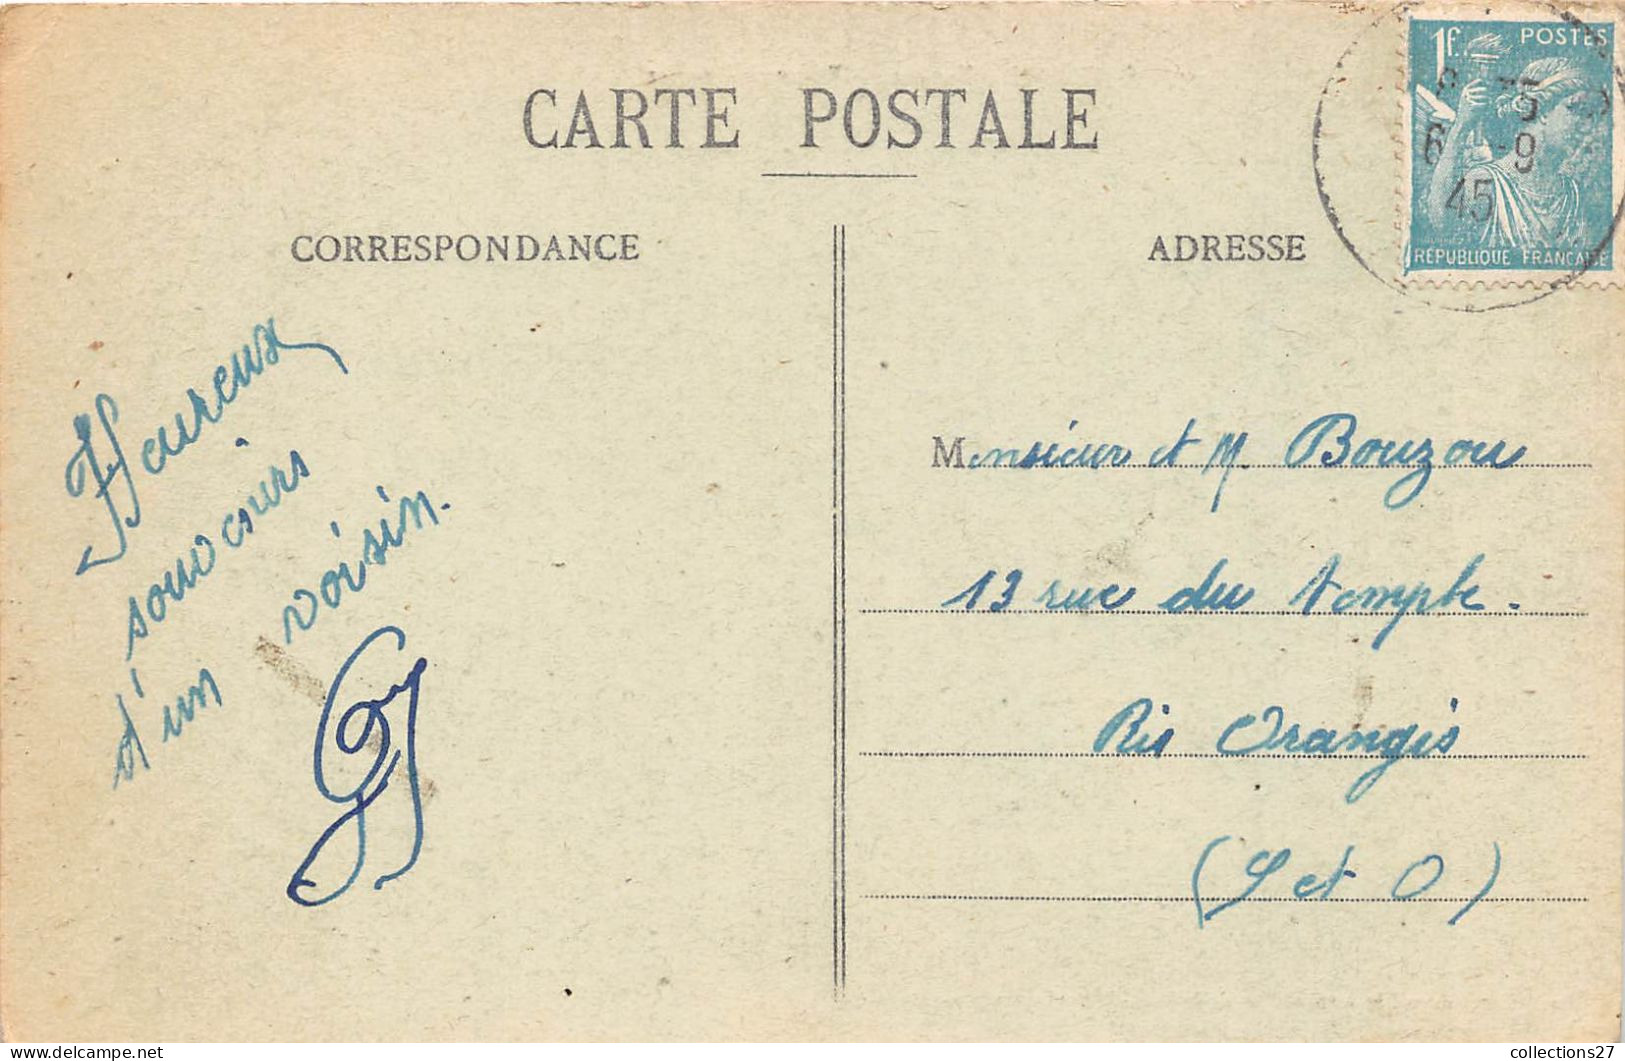 CARTE POSTALE
CORRESPONDANCE
ADRESSE
1F. POSTES
RÉPUBLIQUE FRANÇAISE
6 -9
45
Heureux
souvenirs
d'un voisin.
Monsieur et M. Bouzou
13 rue du temple.
Ris Orangis
(S et O)
collections27